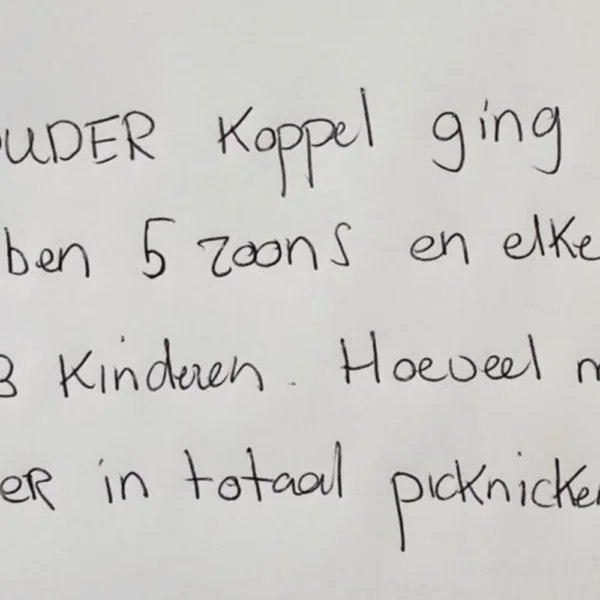 OUDER Koppel ging
ben 5 zoons en elke
3 Kinderen. Hoeveel
ER in totaal picknicke